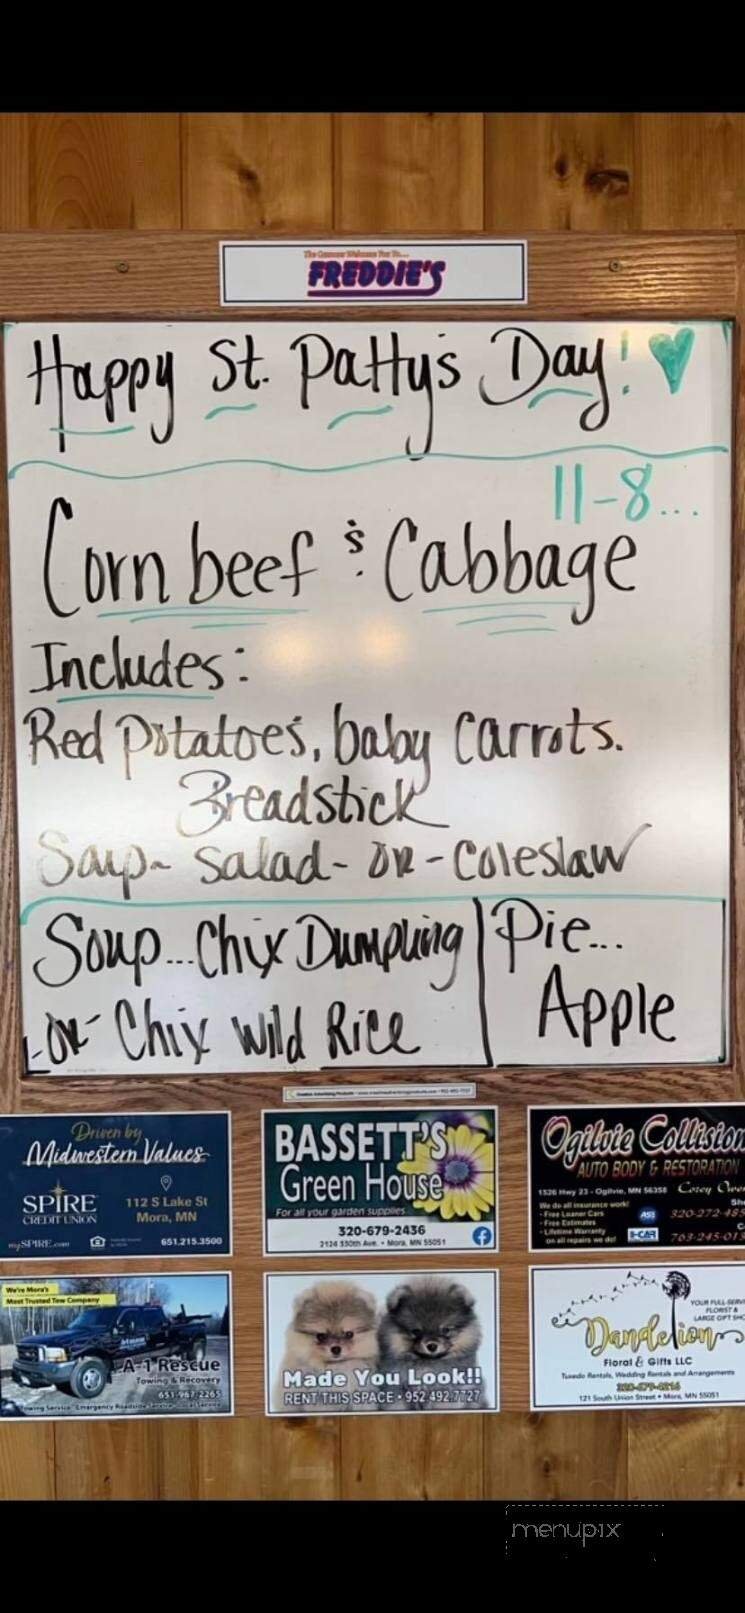 The Common Welcome For To...
FREDDIE'S
Happy St. Patty's Day!
11-8...
Corn beef & Cabbage
Includes:
Red Potatoes, baby carrots.
Breadstick
Soup- Salad- OR - Coleslaw
Soup... Chix Dumpling
-OR- Chix Wild Rice
Pie...
Apple
Driven by
Midwestern Values
SPIRE
CREDIT UNION
112 S Lake St
Mora, MN
mySPIRE.com
651.215.3500
BASSETT'S
Green House
For all your garden supplies
320-679-2436
2124 330th Ave. • Mora, MN 55051
Ogilvie Collision
AUTO BODY & RESTORATION
1526 Hwy 23 - Ogilvie, MN 56358
Corey Owe
We do all insurance work!
- Free Loaner Cars
- Free Estimates
- Lifetime Warranty
on all repairs we do!
ASE
I-CAR
Sh
320-272-485
C
763-245-013
We're Mora's
Most Trusted Tow Company
A-1 Rescue
Towing & Recovery
651-967-2265
Towing Service - Emergency Roadside Service - Local Service
Made You Look!!
RENT THIS SPACE • 952.492.7727
YOUR FULL-SERV
FLORIST &
LARGE GIFT SHO
Dandelion
Floral & Gifts LLC
Tuxedo Rentals, Wedding Rentals and Arrangements
320-679-4216
121 South Union Street • Mora, MN 55051
menupix